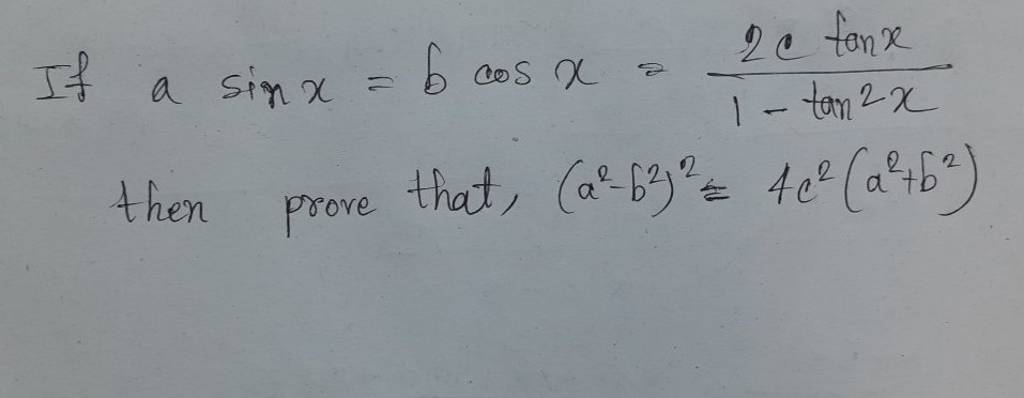 If a sin x = b cos x = 2c tan x / 1 - tan 2x
then prove that, (a²-b²)² = 4c² (a²+b²)